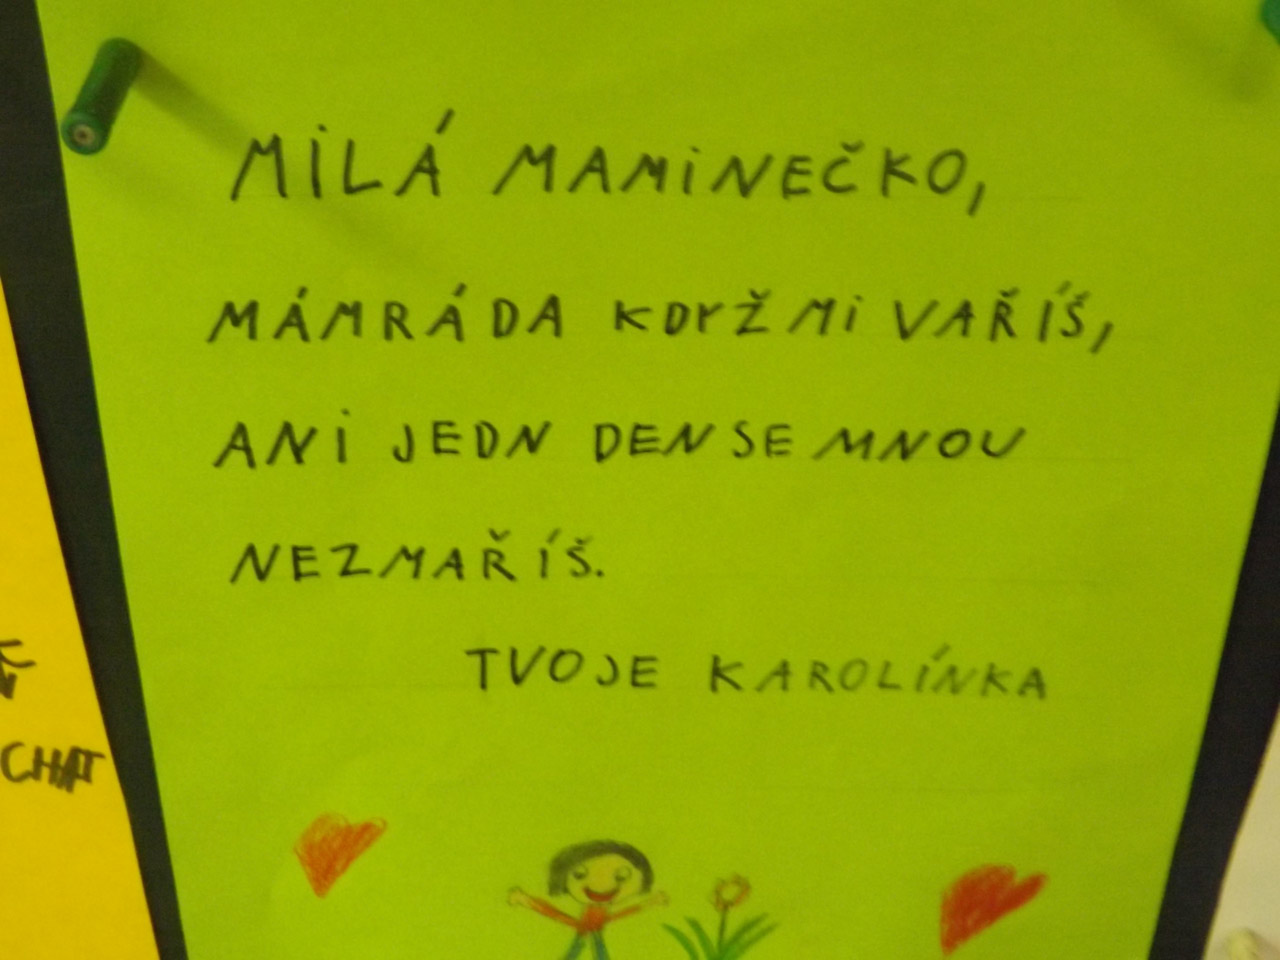 MILÁ MAMINEČKO,
MÁMRÁDA KDYŽ MI VAŘÍŠ,
ANI JEDN DEN SE MNOU
NEZMAŘÍŠ.
TVOJE KAROLÍNKA
CHAT